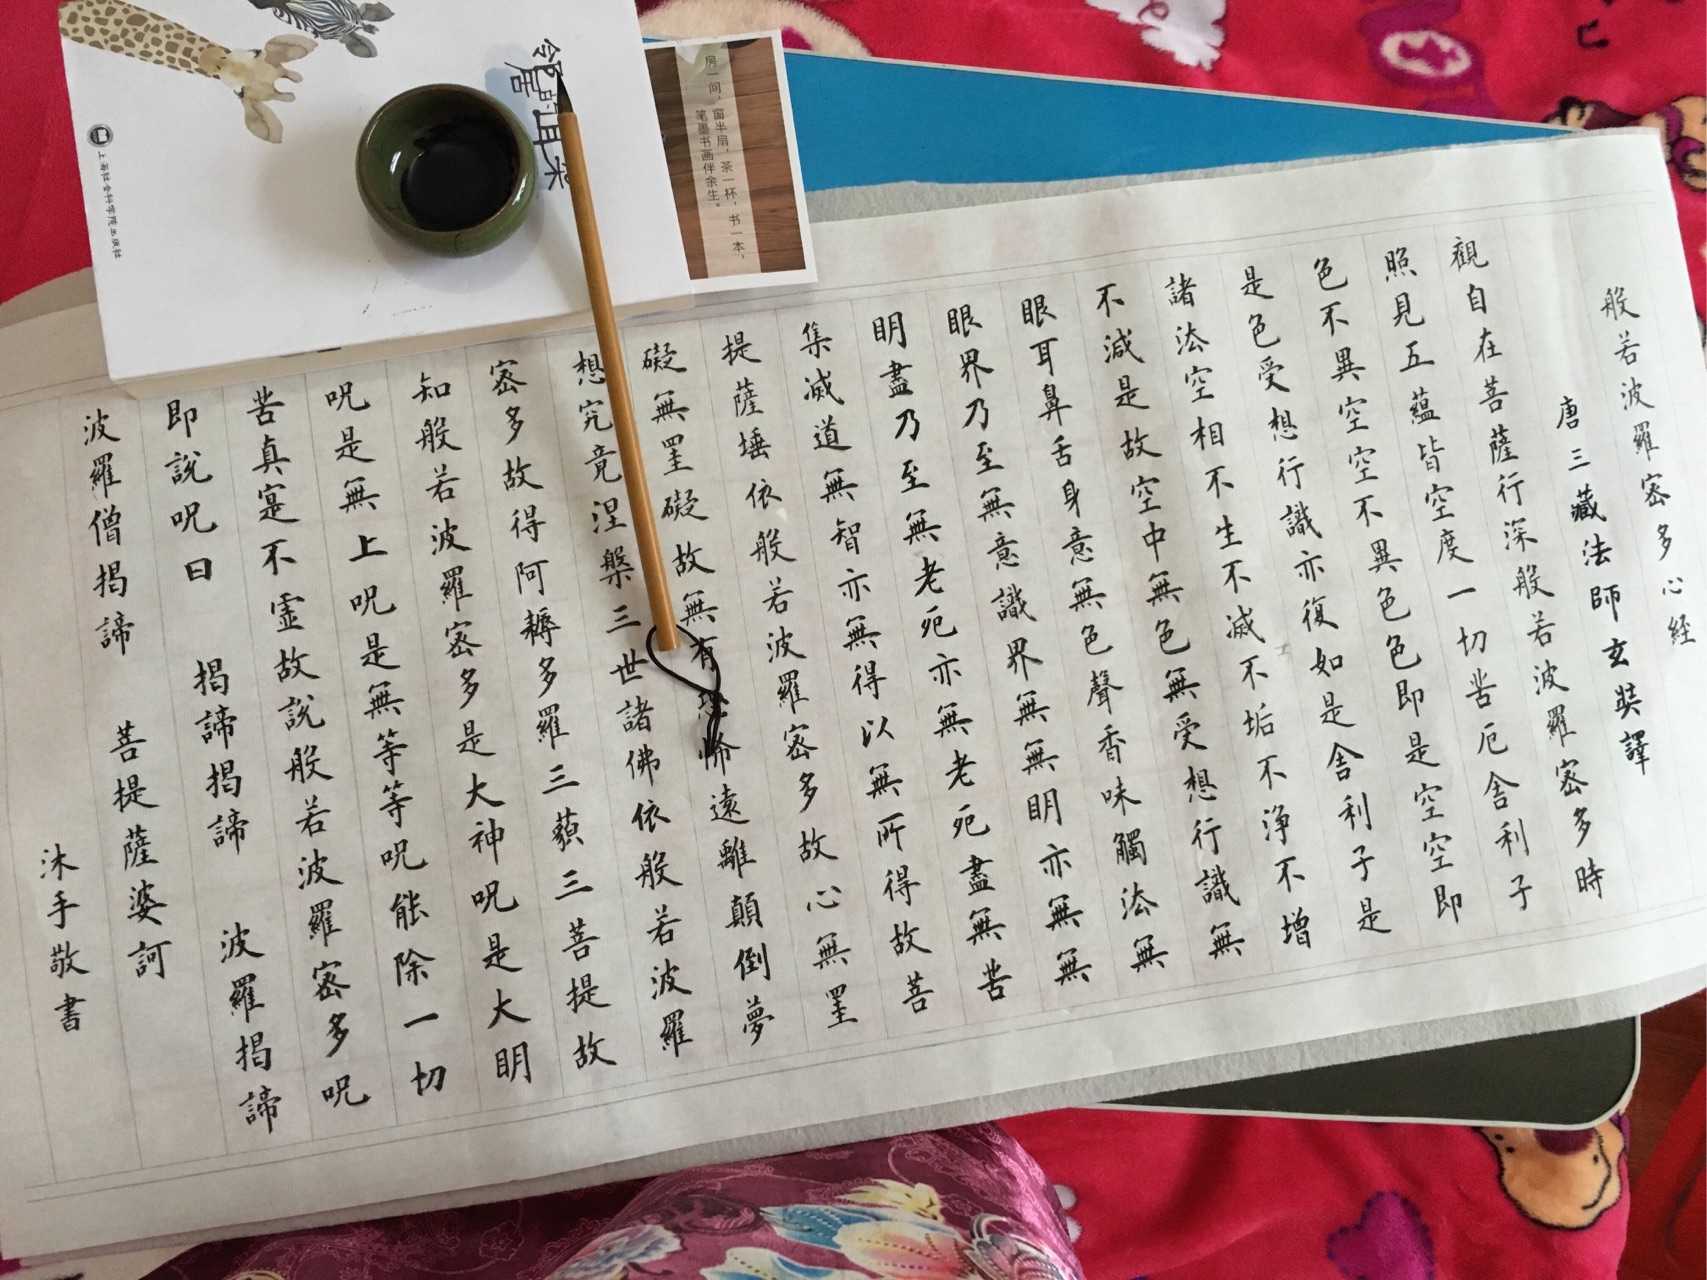 般若波羅密多心経
唐三藏法師玄奘譯
觀自在菩薩行深般若波羅密多時
照見五蘊皆空度一切苦厄舍利子
色不異空空不異色色即是空空即
是色受想行識亦復如是舍利子是
諸法空相不生不滅不垢不淨不增
不減是故空中無色無受想行識無
眼耳鼻舌身意無色聲香味觸法無
眼界乃至無意識界無無明亦無無
明盡乃至無老死亦無老死盡無苦
集滅道無智亦無得以無所得故菩
提薩埵依般若波羅密多故心無罣
礙無罣礙故無有恐怖遠離顛倒夢
想究竟涅槃三世諸佛依般若波羅
密多故得阿耨多羅三藐三菩提故
知般若波羅密多是大神呪是大明
呪是無上呪是無等等呪能除一切
苦真寔不虛故說般若波羅密多呪
即說呪曰 揭諦揭諦 波羅揭諦
波羅僧揭諦 菩提薩婆訶
沐手敬書
房一间，窗半扇，茶一杯，书一本，
笔墨书画伴余生。
邻居的耳朵
上海社会科学院出版社